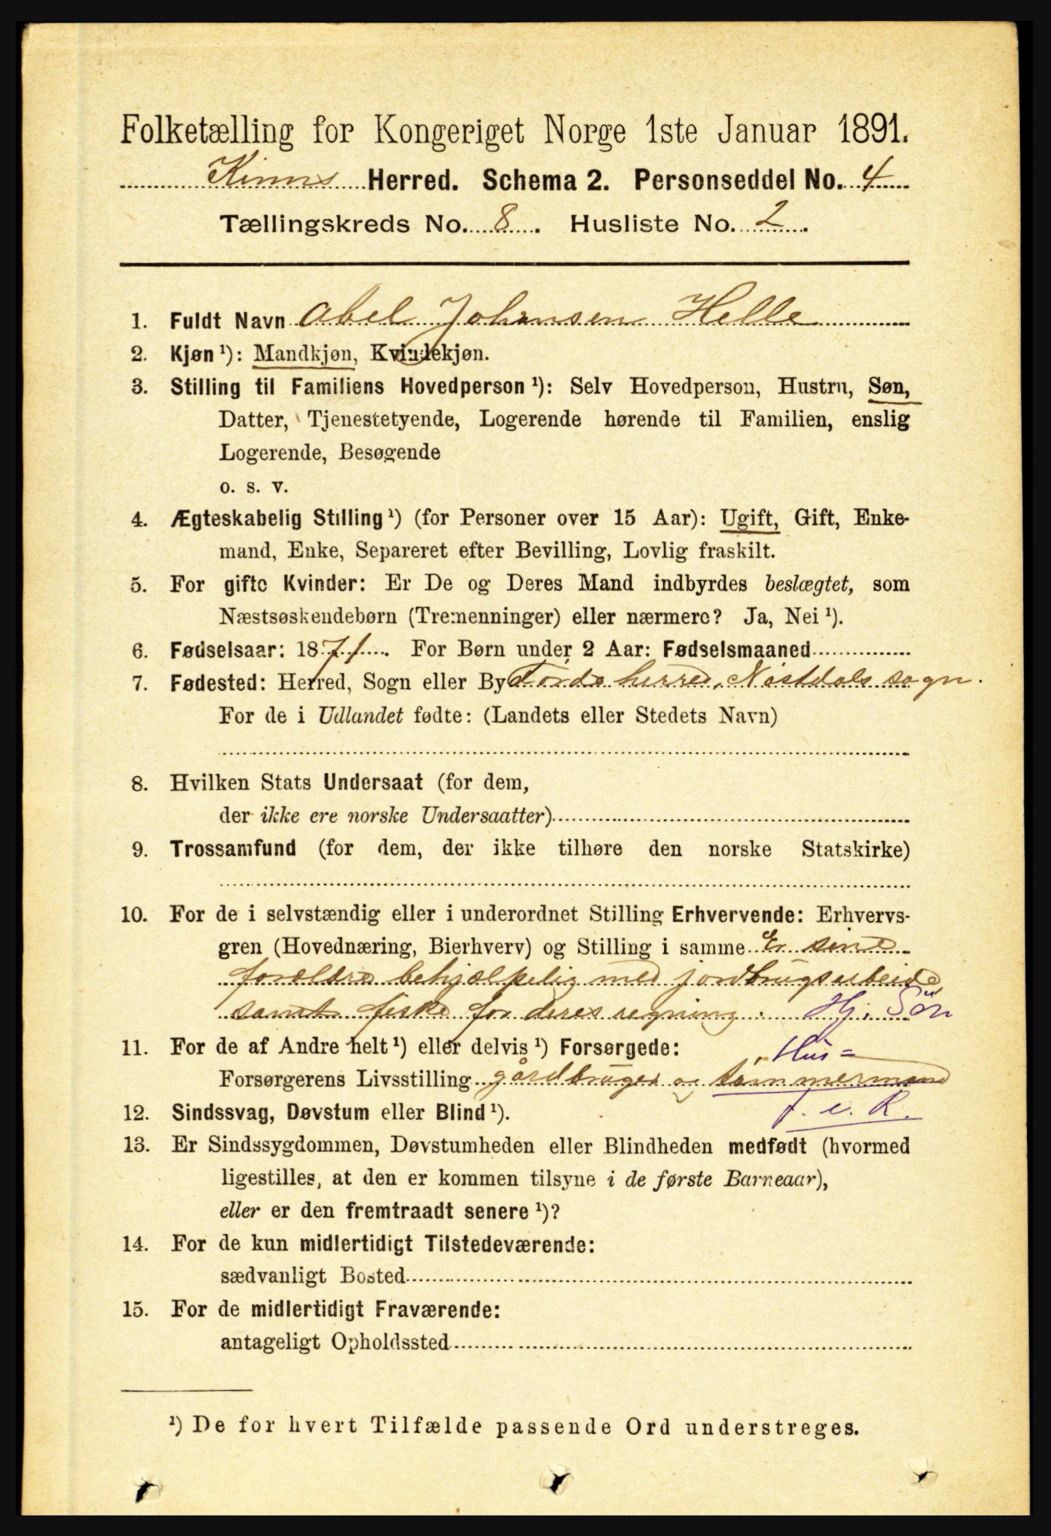 Folketælling for Kongeriget Norge 1ste Januar 1891.
Kinns Herred. Schema 2. Personseddel No. 4
Tællingskreds No. 8. Husliste No. 2.
1. Fuldt Navn Abel Johansen Helle
2. Kjøn ¹): Mandkjøn, Kvindekjøn.
3. Stilling til Familiens Hovedperson ¹): Selv Hovedperson, Hustru, Søn,
Datter, Tjenestetyende, Logerende hørende til Familien, enslig
Logerende, Besøgende
o. s. v.
4. Ægteskabelig Stilling ¹) (for Personer over 15 Aar): Ugift, Gift, Enke-
mand, Enke, Separeret efter Bevilling, Lovlig fraskilt.
5. For gifte Kvinder: Er De og Deres Mand indbyrdes beslægtet, som
Næstsøskendebørn (Tremenninger) eller nærmere? Ja, Nei ¹).
6. Fødselsaar: 1871. For Børn under 2 Aar: Fødselsmaaned
7. Fødested: Herred, Sogn eller By Førde herred, Nøstdals sogn.
For de i Udlandet fødte: (Landets eller Stedets Navn)
8. Hvilken Stats Undersaat (for dem,
der ikke ere norske Undersaatter)
9. Trossamfund (for dem, der ikke tilhøre den norske Statskirke)
10. For de i selvstændig eller i underordnet Stilling Erhvervende: Erhvervs-
gren (Hovednæring, Bierhverv) og Stilling i samme Er sine
forældre behjælpelig med jordbrugsarbeide
samt fiske for deres regning. Hj. Søn
11. For de af Andre helt ¹) eller delvis ¹) Forsørgede: Hus=
Forsørgerens Livsstilling gårdbruger og tømmermand
12. Sindssvag, Døvstum eller Blind ¹). f. e. R.
13. Er Sindssygdommen, Døvstumheden eller Blindheden medfødt (hvormed
ligestilles, at den er kommen tilsyne i de første Barneaar),
eller er den fremtraadt senere ¹)?
14. For de kun midlertidigt Tilstedeværende:
sædvanligt Bosted
15. For de midlertidigt Fraværende:
antageligt Opholdssted
¹) De for hvert Tilfælde passende Ord understreges.